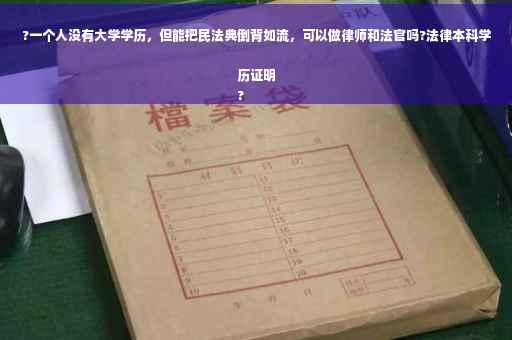 ?一个人没有大学学历，但能把民法典倒背如流，可以做律师和法官吗?法律本科学
历证明
?
檔案袋
材料目次
1
2
3
4
5
6
7
8
9
10
11
12
13
14
15
16
17
18
19
20
年 月 日